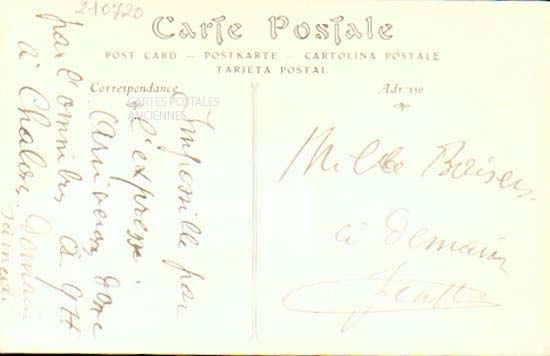 210720
Carte Postale
POST CARD — POSTKARTE — CARTOLINA POSTALE
TARJETA POSTAL
Correspondance
CARTES POSTALES
ANCIENNES
Impossible par
l'express
arriverons donc
par l'omnibus à 9H
à Chalon. demain
samedi
Adresse
Mille Baisers
à demain